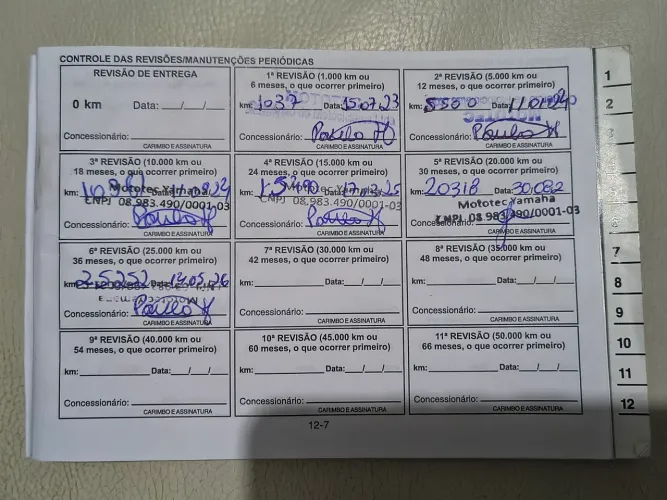 CONTROLE DAS REVISÕES/MANUTENÇÕES PERIÓDICAS
REVISÃO DE ENTREGA
0 km Data: __/__/__
Concessionário:
CARIMBO E ASSINATURA
1ª REVISÃO (1.000 km ou
6 meses, o que ocorrer primeiro)
km: 1037 Data: 15.07.23
Paulo H
CARIMBO E ASSINATURA
2ª REVISÃO (5.000 km ou
12 meses, o que ocorrer primeiro)
km: 5500 Data: 11/01/24
Concessionário: Paulo H
CARIMBO E ASSINATURA
3ª REVISÃO (10.000 km ou
18 meses, o que ocorrer primeiro)
km: Data:
Mototec Yamaha
CNPJ 08.983.490/0001-03
Paulo H
CARIMBO E ASSINATURA
4ª REVISÃO (15.000 km ou
24 meses, o que ocorrer primeiro)
km: Data:
Mototec Yamaha
CNPJ 08.983.490/0001-03
Paulo H
CARIMBO E ASSINATURA
5ª REVISÃO (20.000 km ou
30 meses, o que ocorrer primeiro)
km: 20318 Data: 30.082
Mototec Yamaha
CNPJ 08.983.490/0001-03
CARIMBO E ASSINATURA
6ª REVISÃO (25.000 km ou
36 meses, o que ocorrer primeiro)
km: 25252 Data:
Paulo H
CARIMBO E ASSINATURA
7ª REVISÃO (30.000 km ou
42 meses, o que ocorrer primeiro)
km: Data: __/__/__
Concessionário:
CARIMBO E ASSINATURA
8ª REVISÃO (35.000 km ou
48 meses, o que ocorrer primeiro)
km: Data: __/__/__
Concessionário:
CARIMBO E ASSINATURA
9ª REVISÃO (40.000 km ou
54 meses, o que ocorrer primeiro)
km: Data: __/__/__
Concessionário:
CARIMBO E ASSINATURA
10ª REVISÃO (45.000 km ou
60 meses, o que ocorrer primeiro)
km: Data: __/__/__
Concessionário:
CARIMBO E ASSINATURA
11ª REVISÃO (50.000 km ou
66 meses, o que ocorrer primeiro)
km: Data: __/__/__
Concessionário:
CARIMBO E ASSINATURA
12-7
1
2
3
7
8
9
10
11
12